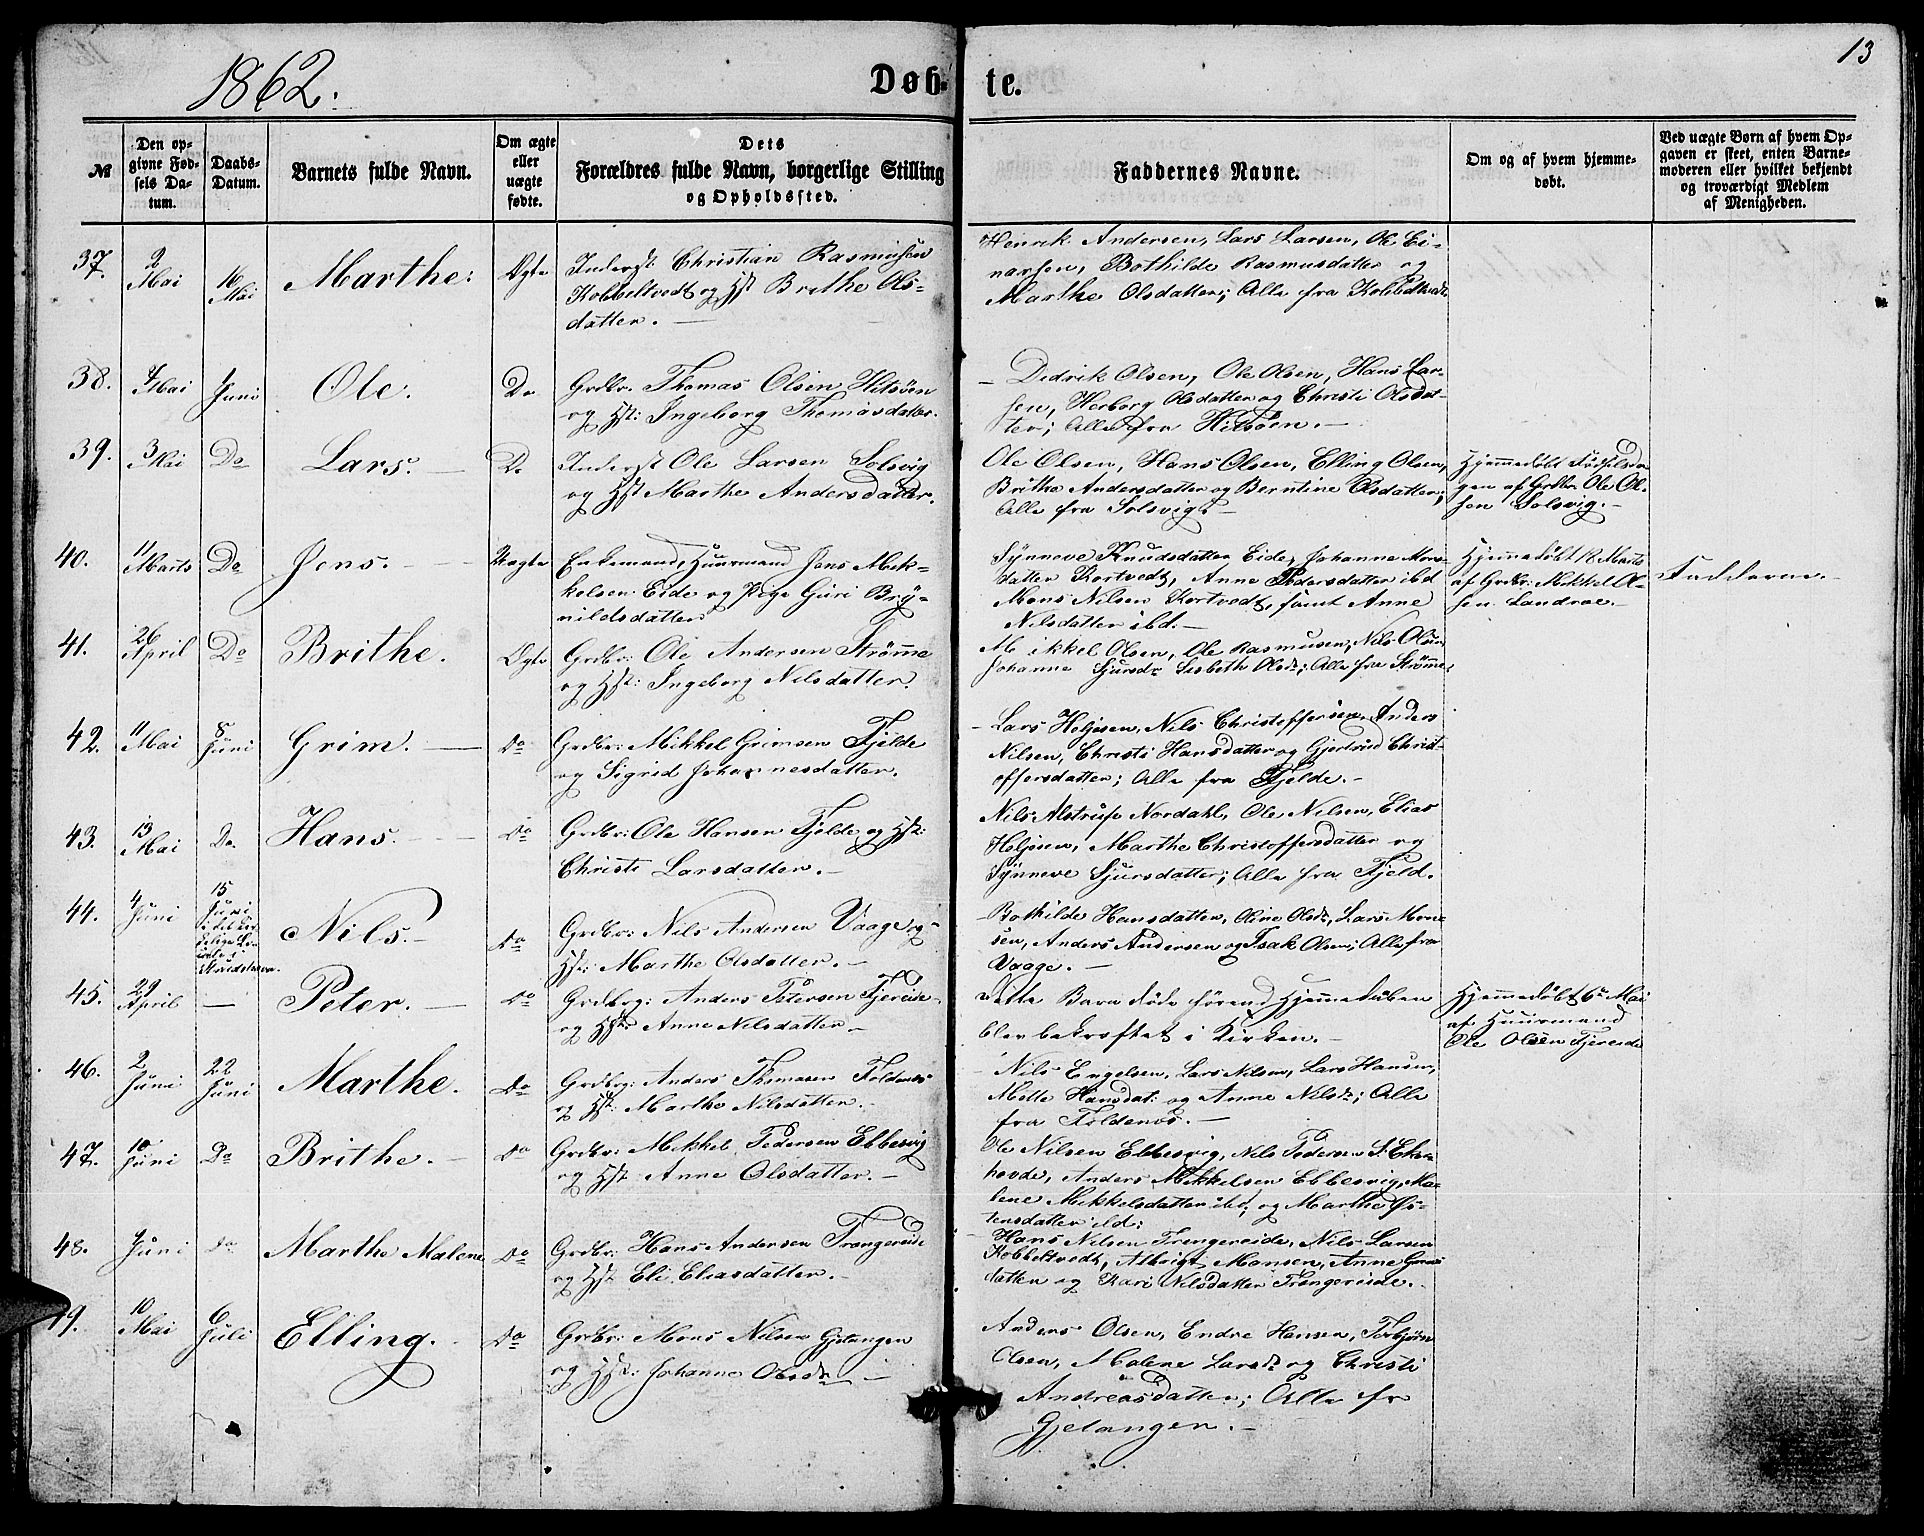 13
1862.
Døb- te.
№
Den op-
givne Fød-
sels Da-
tum.
Daabs-
Datum.
Barnets fulde Navn.
Om ægte
eller
uægte
fødte.
Dets
Forældres fulde Navn, borgerlige Stilling
og Opholdssted.
Faddernes Navne.
Om og af hvem hjemme-
døbt.
Ved uægte Børn af hvem Op-
gaven er skeet, enten Barne-
moderen eller hvilket bekjendt
og troværdigt Medlem
af Menigheden.
37.
2
Mai
16
Mai
Marthe.
Ægte
Inderst Christian Rasmussen
Kobbeltvedt og Hst Brithe Ols-
datter. —
Henrik Andersen, Lars Larsen, Ole Ei-
narsen, Bothilde Rasmusdatter og
Marthe Olsdatter; Alle fra Kobbeltvedt
38.
4
Mai
1
Juni
Ole.
Do
Grdbr. Thomas Olsen Hitsøen
og Hst: Ingeborg Thomasdatter.
Didrik Olsen, Ole Olsen, Hans Lar-
sen, Herborg Olsdatter og Christi Olsdat-
ter; Alle fra Hitsøen. —
39.
3
Mai
Do
Lars. —
Do
Inderst Ole Larsen Solsvig
og Hst Marthe Andersdatter.
Ole Olsen, Hans Olsen, Elling Olsen,
Brithe Andersdatter og Berntine Olsdatter;
Alle fra Solsvig. —
Hjemmedøbt Fødselsda-
gen af Grdbr. Ole Ol-
sen Solsvig. —
40.
11
Marts
Do
Jens. —
Uægte
Enkemand, Huusmand Jens Mik-
kelsen Eide og Pige Guri Bry-
nildsdatter
Synneve Knudsdatter Eide, Johanne Mons-
datter Kortvedt, Anne Pedersdatter ibd
Mons Nilsen Kortvedt, samt Anne
Nilsdatter ibd. —
Hjemmedøbt 18 Marts
af Grdbr: Mikkel Ol-
sen Landroe. —
Fadderne. —
41.
26
April
Do
Brithe.
Ægte
Grdbr: Ole Andersen Strømme
og Hst: Ingeborg Nilsdatter.
Mikkel Olsen, Ole Rasmusen, Nils Olsen,
Johanne Sjursdr Lisbeth Olsdr; Alle fra Strømme.
42.
11
Mai
8
Juni
Grim. —
Do
Grdbr: Mikkel Grimsen Fjelde
og Sigrid Johannesdatter.
Lars Heljesen, Nils Christoffersen, Anders
Nilsen, Christi Hansdatter og Gjertrud Christ-
offersdatter; Alle fra Fjelde. —
43.
13
Mai
Do.
Hans. —
Do
Grdbr: Ole Hansen Fjelde og Hst:
Christi Larsdatter. —
Nils Alstrup Nordahl, Ole Nilsen, Elias
Heljesen, Marthe Christoffersdatter og
Synneve Sjursdatter; Alle fra Fjeld.
44.
4
Juni
15
Juni
Nils. —
Do
Grdbr: Nils Andersen Vaage og
Hst: Marthe Olsdatter. —
Bothilde Hansdatter, Oline Olsdr, Lars Mon-
sen, Anders Andersen og Isak Olsen; Alle fra
Vaage. —
45.
29
April
—
Peter. —
Do
Grdbrg: Anders Petersen Fjereide
og Hst: Anne Nilsdatter —
Dette Barn døde førend Hjemmedaaben
blev bekræftet i Kirken. —
Hjemmedøbt 6te Mai
af Huusmand
Ole Olsen Fjereide
46.
2
Juni
22
Juni
Marthe.
Do
Grdbrg: Anders Thomasen Foldenes
og Hst: Marthe Nilsdatter. —
Nils Engelsen, Lars Nilsen, Lars Hansen,
Mette Hansdat: og Anne Nilsdr; Alle
fra Foldenes. —
47.
10
Juni
Do
Brithe. —
Do
Grdbr: Mikkel Pedersen Ebbesvig
og Hst Anne Olsdatter. —
Ole Nilsen Ebbesvig, Nils Pedersen
hovde, Anders Mikkelsen Ebbesvig, Ma-
lene Mikkelsdatter ibd, og Marthe
tensdatter ibd:
48.
4
Juni
Do
Marthe Malene
Do
Grdbr: Hans Andersen Trengereide
og Hst Eli Eliasdatter. —
Hans Nilsen Trengereide, Nils Larsen
Kobbeltvedt, Albrigt Monsen, Anne
datter og Kari Nilsdatter Trengereide. —
49.
10
Mai
6
Juli
Elling. —
Do
Grdbr: Mons Nilsen Gjetangen
og Hst: Johanne Olsdr —
Anders Olsen, Endre Hansen, Torbjørn
Olsen, Malene Larsdr og Christi
Andreasdatter; Alle fr
Gjetangen. —